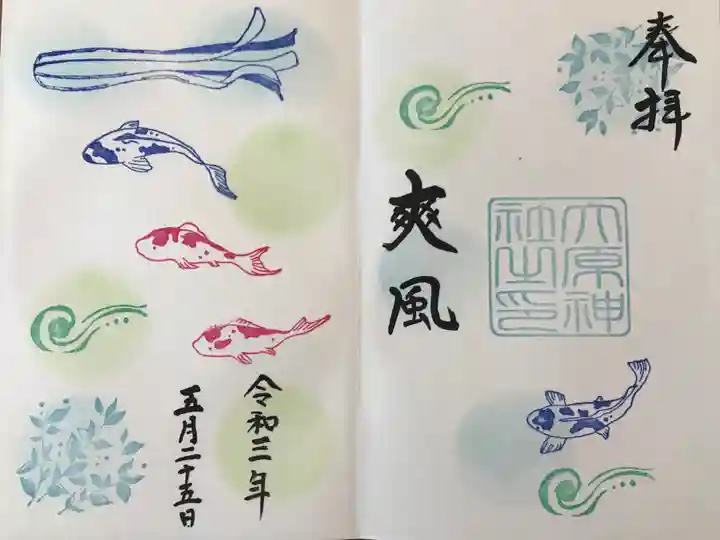 奉拝
爽風
六原神
社之印
令和三年
五月二十五日